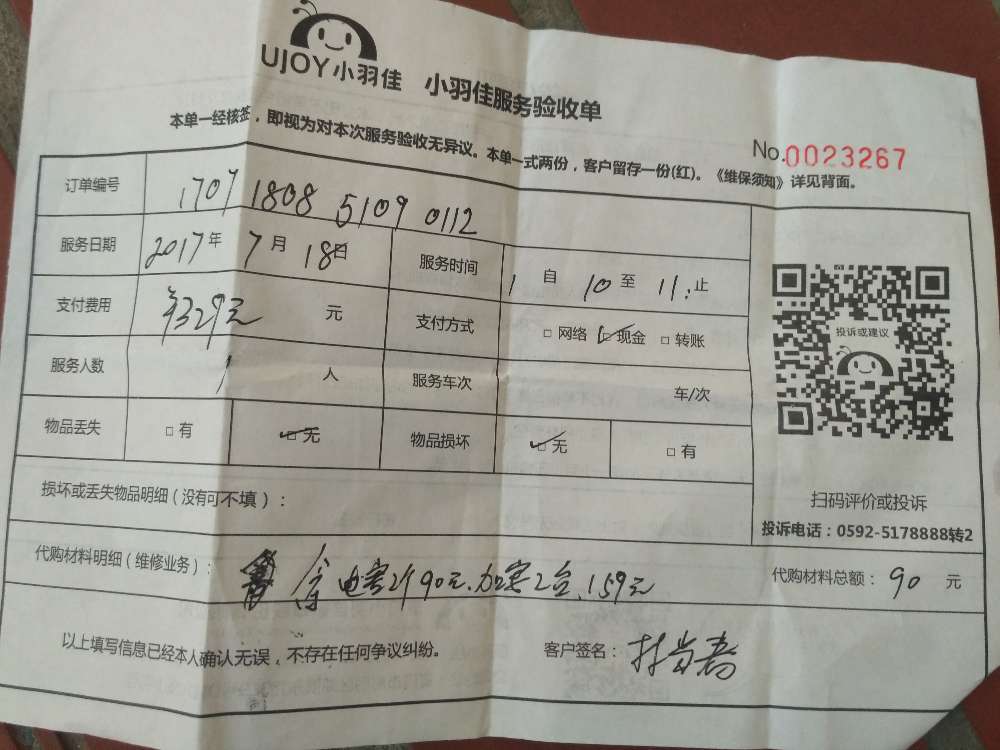 UJOY小羽佳 小羽佳服务验收单
本单一经核签，即视为对本次服务验收无异议。本单一式两份，客户留存一份(红)。《维保须知》详见背面。
No.0023267
订单编号 1707 1808 5109 0112
服务日期 2017年 7月 18日 服务时间 自 10 至 11: 止
支付费用 ¥329元 元 支付方式 □ 网络 □ 现金 □ 转账
服务人数 1 人 服务车次 车/次
物品丢失 □ 有 □ 无 物品损坏 □ 无 □ 有
投诉或建议
扫码评价或投诉
投诉电话：0592-5178888转2
损坏或丢失物品明细（没有可不填）：
代购材料明细（维修业务）： 电容2个90元.加 2台.159元
代购材料总额： 90 元
以上填写信息已经本人确认无误，不存在任何争议纠纷。
客户签名：